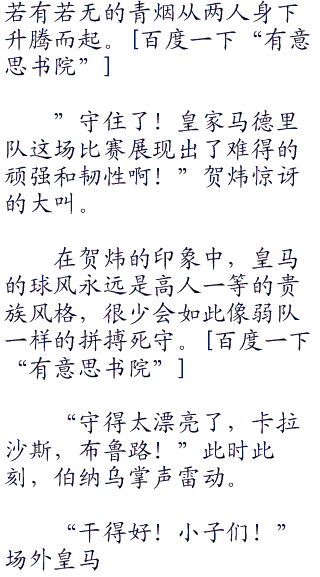 若有若无的青烟从两人身下
升腾而起。[百度一下“有意
思书院”]
”守住了！皇家马德里
队这场比赛展现出了难得的
顽强和韧性啊！”贺炜惊讶
的大叫。
在贺炜的印象中，皇马
的球风永远是高人一等的贵
族风格，很少会如此像弱队
一样的拼搏死守。[百度一下
“有意思书院”]
“守得太漂亮了，卡拉
沙斯，布鲁路！”此时此
刻，伯纳乌掌声雷动。
“干得好！小子们！”
场外皇马